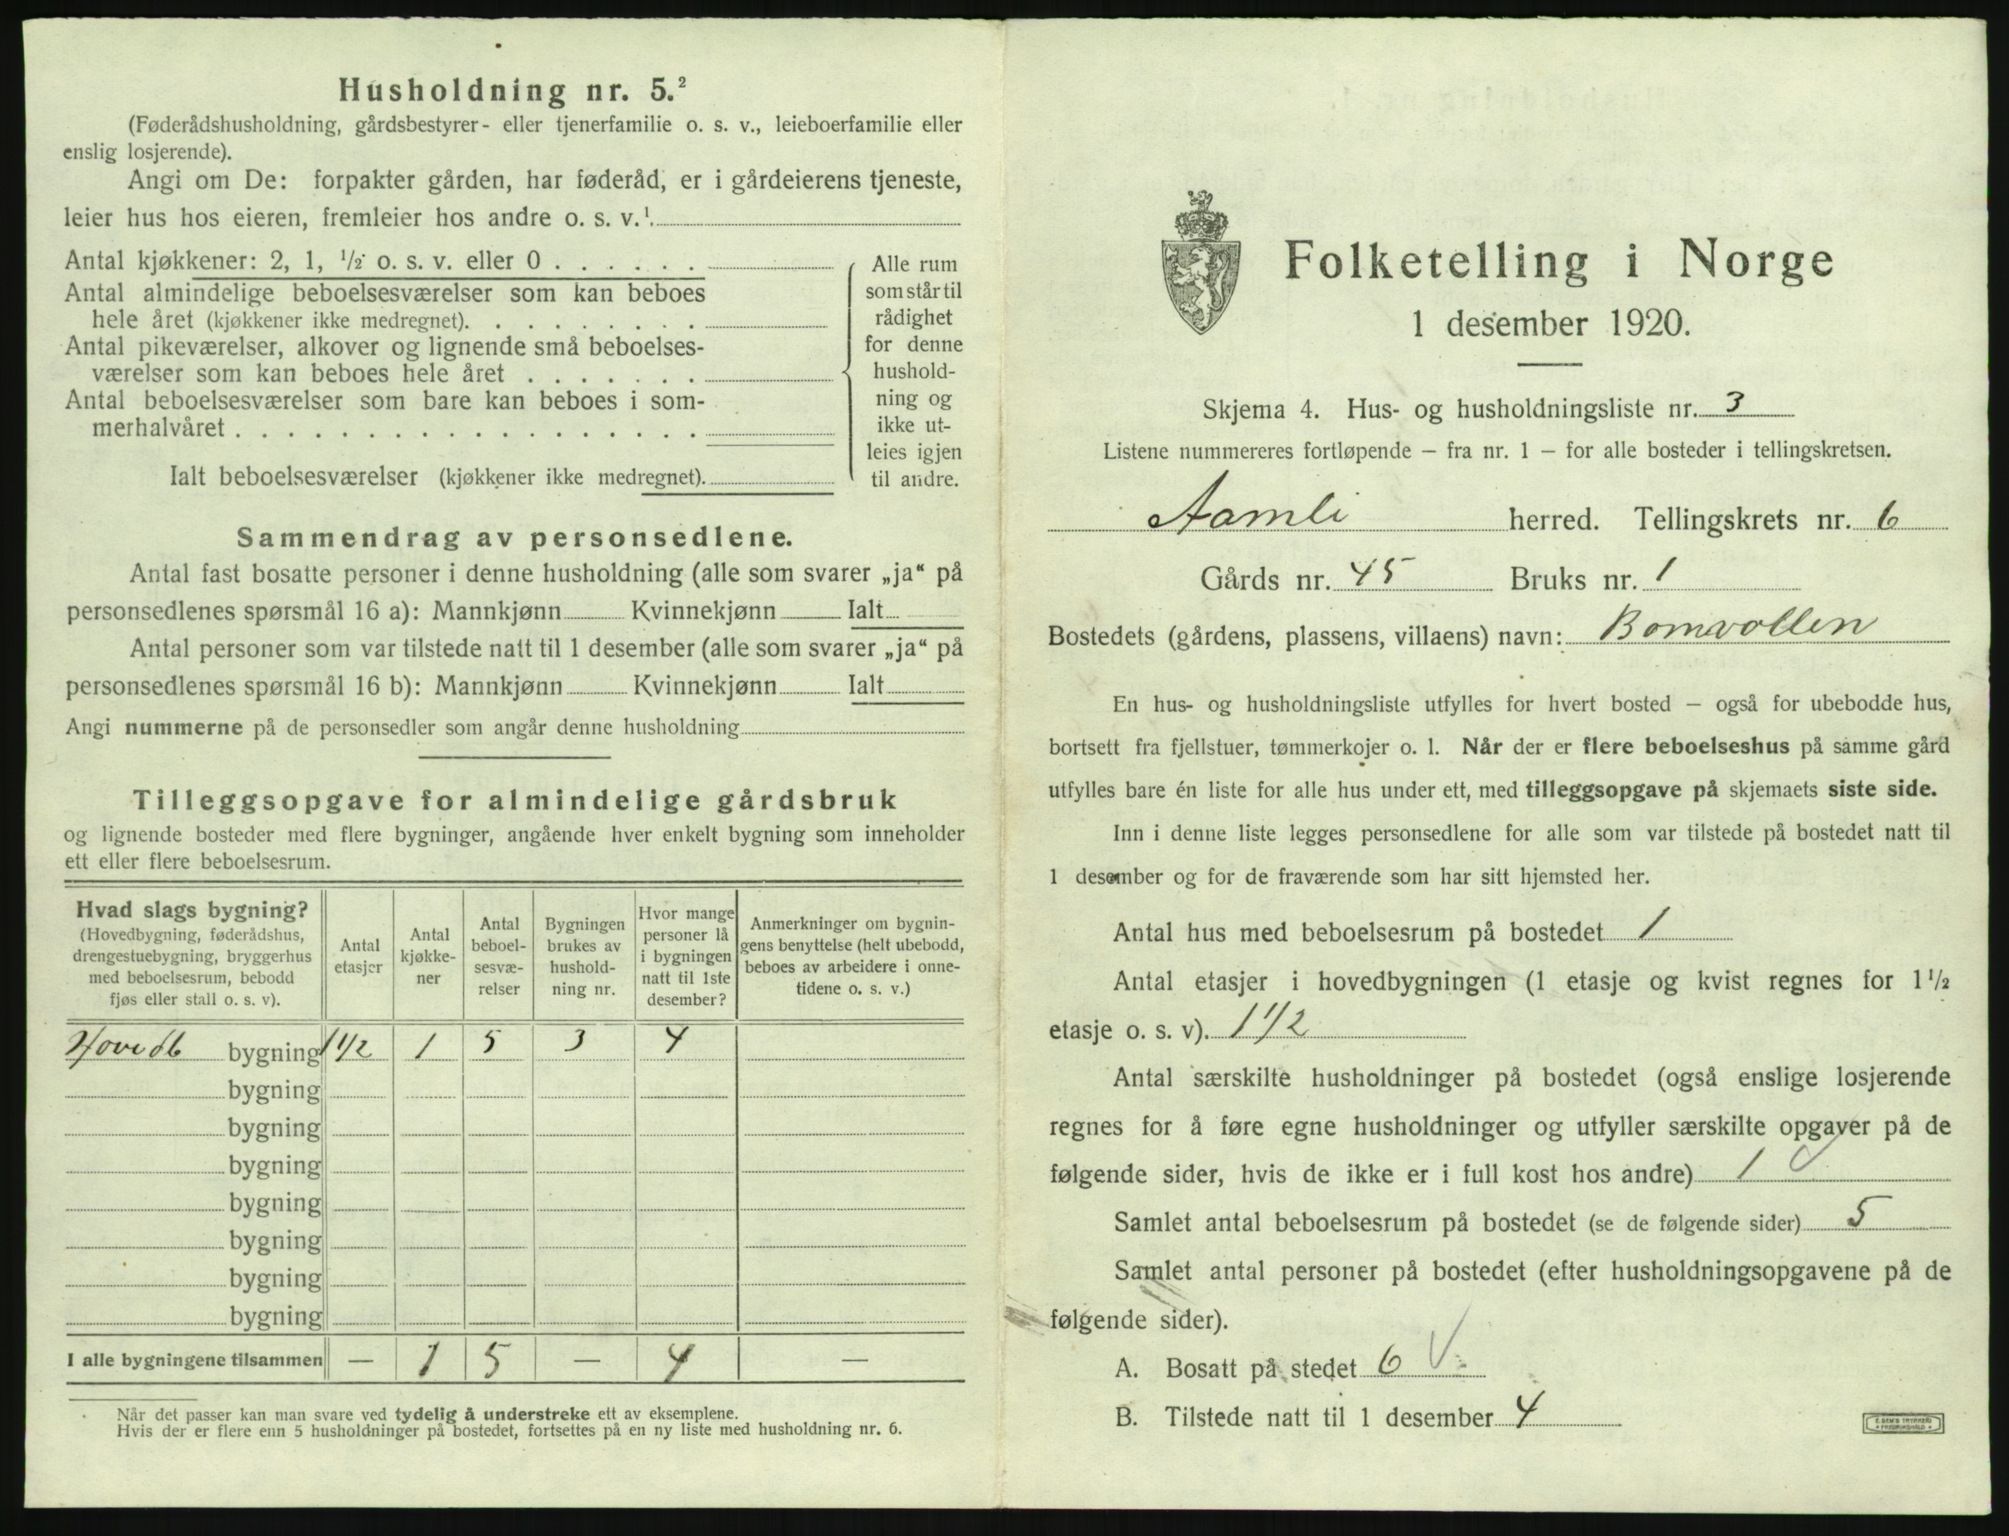 Husholdning nr. 5.²
(Føderådshusholdning, gårdsbestyrer- eller tjenerfamilie o. s. v., leieboerfamilie eller
enslig losjerende).
Angi om De: forpakter gården, har føderåd, er i gårdeierens tjeneste,
leier hus hos eieren, fremleier hos andre o. s. v.¹
Antal kjøkkener: 2, 1, ½ o. s. v. eller 0 . . . . . .
Antal almindelige beboelsesværelser som kan beboes
hele året (kjøkkener ikke medregnet). . . . . . . . .
Antal pikeværelser, alkover og lignende små beboelses-
værelser som kan beboes hele året . . . . . . .
Antal beboelsesværelser som bare kan beboes i som-
merhalvåret . . . . . . . . . . . . . . . . . .
Ialt beboelsesværelser (kjøkkener ikke medregnet).
Alle rum
som står til
rådighet
for denne
hushold-
ning og
ikke ut-
leies igjen
til andre.
Sammendrag av personsedlene.
Antal fast bosatte personer i denne husholdning (alle som svarer „ja“ på
personsedlenes spørsmål 16 a): Mannkjønn Kvinnekjønn Ialt
Antal personer som var tilstede natt til 1 desember (alle som svarer „ja“ på
personsedlenes spørsmål 16 b): Mannkjønn Kvinnekjønn Ialt
Angi nummerne på de personsedler som angår denne husholdning
Tilleggsopgave for almindelige gårdsbruk
og lignende bosteder med flere bygninger, angående hver enkelt bygning som inneholder
ett eller flere beboelsesrum.
Hvad slags bygning?
(Hovedbygning, føderådshus,
drengestuebygning, bryggerhus
med beboelsesrum, bebodd
fjøs eller stall o. s. v).
Antal
etasjer
Antal
kjøkke-
ner
Antal
beboel-
sesvæ-
relser
Bygningen
brukes av
hushold-
ning nr.
Hvor mange
personer lå
i bygningen
natt til 1ste
desember?
Anmerkninger om bygnin-
gens benyttelse (helt ubebodd,
beboes av arbeidere i onne-
tidene o. s. v.)
Hovedb bygning 1 1/2 1 5 3 4
bygning
bygning
bygning
bygning
bygning
bygning
bygning
I alle bygningene tilsammen — 1 5 — 4 —
Når det passer kan man svare ved tydelig å understreke ett av eksemplene.
Hvis der er flere enn 5 husholdninger på bostedet, fortsettes på en ny liste med husholdning nr. 6.
Folketelling i Norge
1 desember 1920.
Skjema 4. Hus- og husholdningsliste nr. 3
Listene nummereres fortløpende – fra nr. 1 – for alle bosteder i tellingskretsen.
Aamli herred. Tellingskrets nr. 6
Gårds nr. 45 Bruks nr. 1
Bostedets (gårdens, plassens, villaens) navn: Bomvollen
En hus- og husholdningsliste utfylles for hvert bosted – også for ubebodde hus,
bortsett fra fjellstuer, tømmerkojer o. l. Når der er flere beboelseshus på samme gård
utfylles bare én liste for alle hus under ett, med tilleggsopgave på skjemaets siste side.
Inn i denne liste legges personsedlene for alle som var tilstede på bostedet natt til
1 desember og for de fraværende som har sitt hjemsted her.
Antal hus med beboelsesrum på bostedet 1
Antal etasjer i hovedbygningen (1 etasje og kvist regnes for 1 ½
etasje o. s. v). 1 1/2
Antal særskilte husholdninger på bostedet (også enslige losjerende
regnes for å føre egne husholdninger og utfyller særskilte opgaver på de
følgende sider, hvis de ikke er i full kost hos andre) 1
Samlet antal beboelsesrum på bostedet (se de følgende sider) 5
Samlet antal personer på bostedet (efter husholdningsopgavene på de
følgende sider).
A. Bosatt på stedet 6
B. Tilstede natt til 1 desember 4